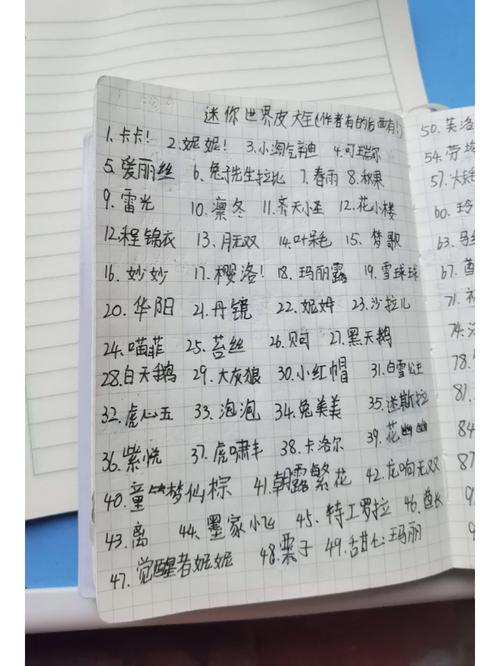 迷你世界皮大全(作者有的后面有!)
1.卡卡! 2.妮妮! 3.小淘气辛迪 4.可瑞尔
5.爱丽丝 6.兔子先生拉比 7.春雨 8.秋果
9.雷光 10.凛冬 11.齐天小圣 12.花小楼
12.程锦衣 13.月无双 14.叶呆毛 15.梦歌
16.妙妙 17.樱洛! 18.玛丽露 19.雪球球
20.华阳 21.丹镜 22.妮姆 23.沙拉儿
24.喵菲 25.苔丝 26.贝可 27.黑天鹅
28.白天鹅 29.大灰狼 30.小红帽 31.白雪公主
32.虎心五 33.泡泡 34.兔美美 35.迷斯拉
36.紫悦 37.虎啸丰 38.卡洛尔 39.花幽幽
40.童梦仙棕 41.朝露繁花 42.龙吟无双
43.离 44.墨家小飞 45.特工罗拉 46.酋长
47.觉醒者妮妮 48.栗子 49.甜心玛丽
50.芙洛
54.劳
57.大
60.玲
63.马
67.酋
71.
74.
78.
81.
84
87